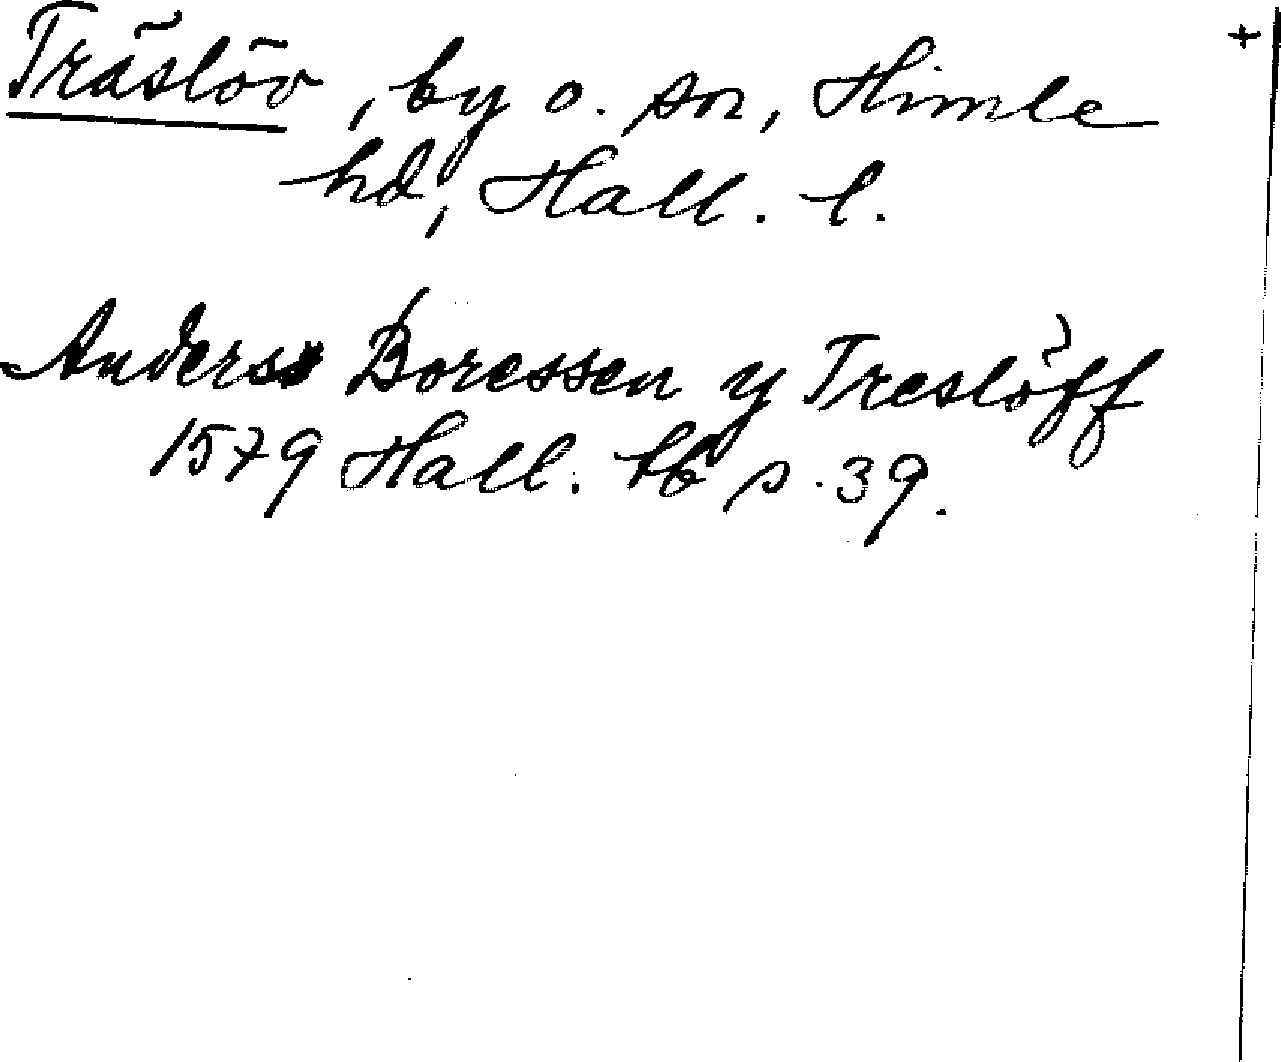 Träslöv, by o. sn, Himle +
hd, Hall. l.
Anders Boressen y Treslöff
1579 Hall. lb s. 39.